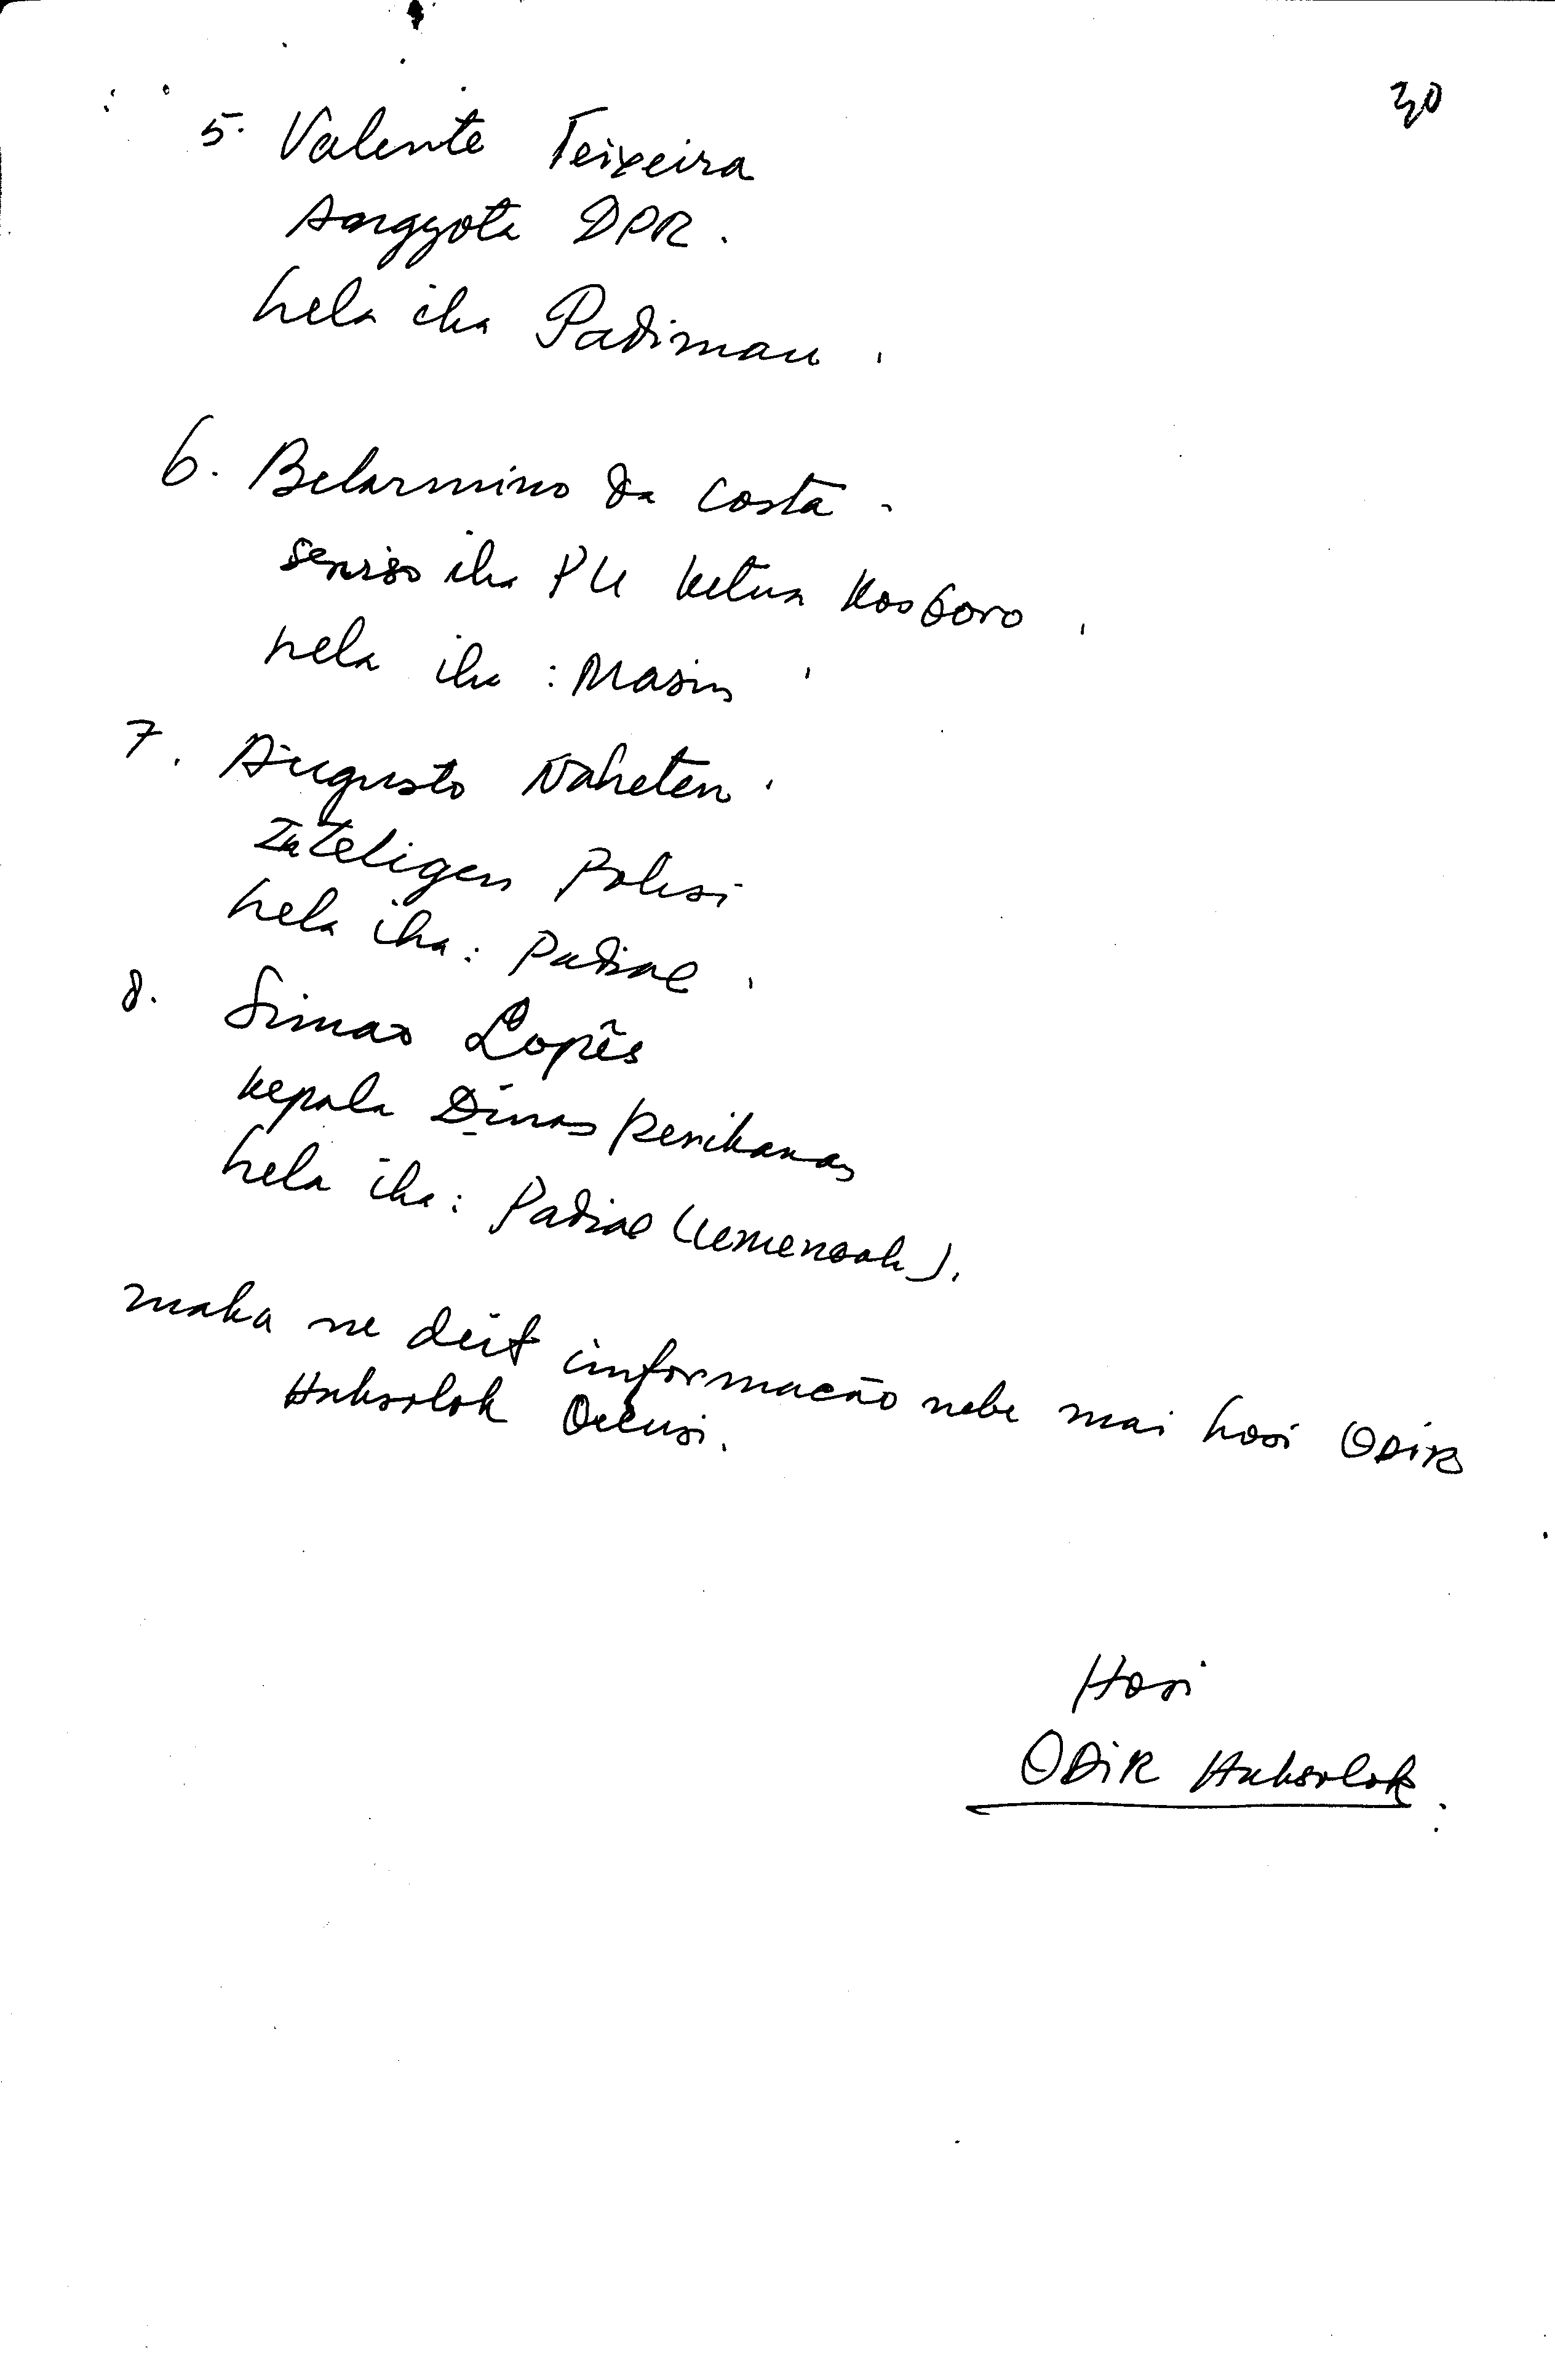 30
5. Valente Teixeira
Anggota DPR.
hela iha Padimau.
6. Belarmino da Costa.
serviso iha PU ketua Kosgoro.
hela iha : Masin
7. Augusto Naheten.
Inteligen Polisi
hela iha : Padiae.
8. Simao Lopês
kepala Dinas perikanan
hela iha : Padiae (
maka ne deit informacão nebe mai hosi ODIR
Huksolok Oecusi.
Hosi
ODIR Huksolok.